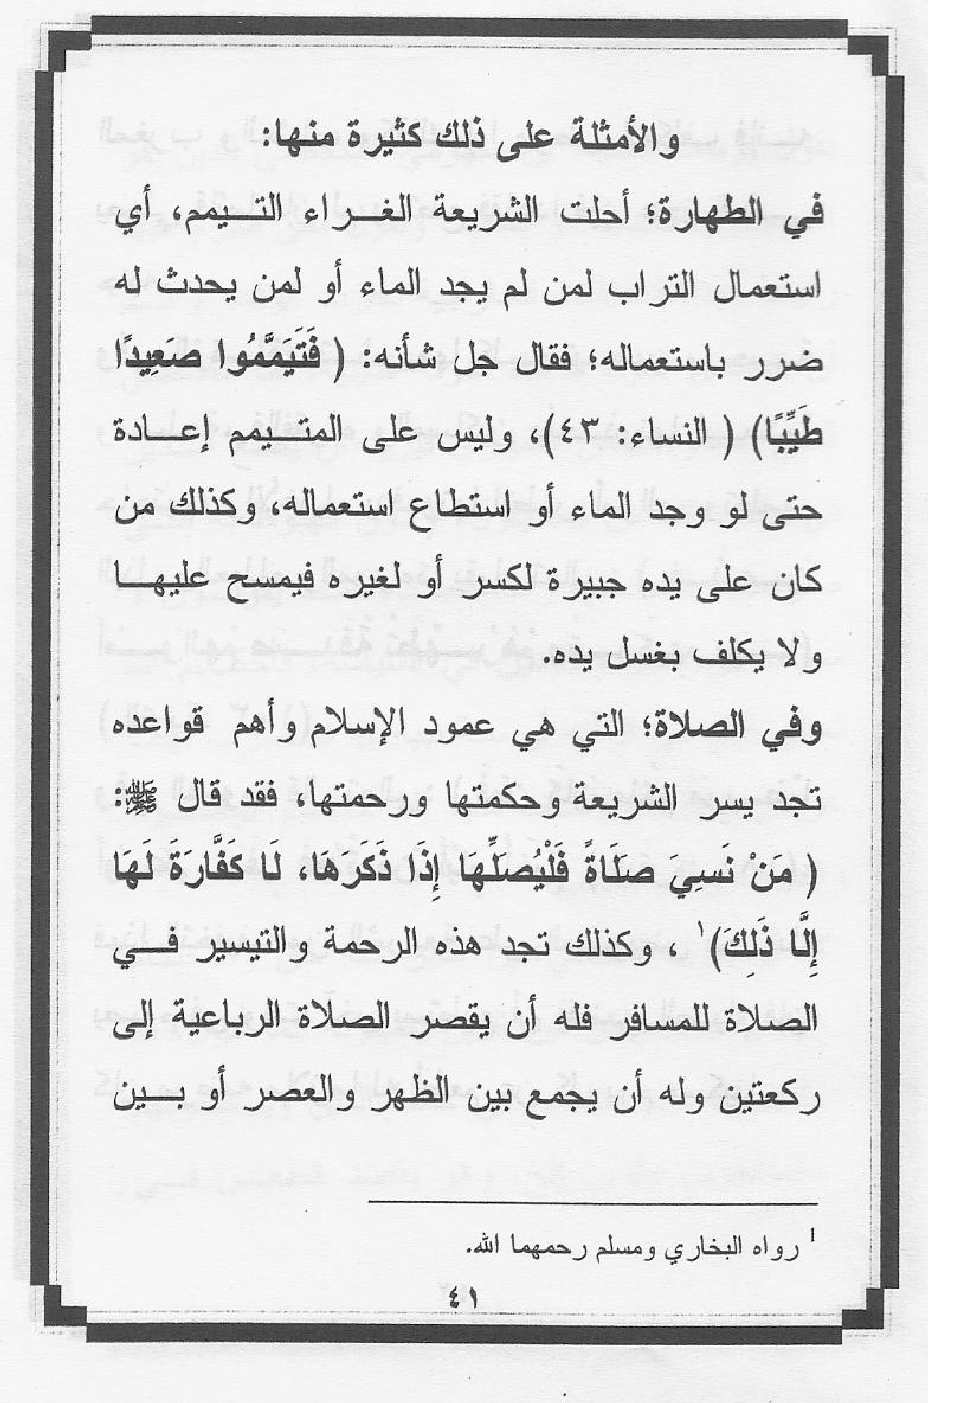 والأمثلة على ذلك كثيرة منها:
في الطهارة؛ أحلت الشريعة الغـــراء التـــيمم، أي
استعمال التراب لمن لم يجد الماء أو لمن يحدث له
ضرر باستعماله؛ فقال جل شأنه: ( فَتَيَمَّمُوا صَعِيدًا
طَيِّبًا) ( النساء: ٤٣)، وليس على المتـــيمم إعـــادة
حتى لو وجد الماء أو استطاع استعماله، وكذلك من
كان على يده جبيرة لكسر أو لغيره فيمسح عليهـــا
ولا يكلف بغسل يده.
وفي الصلاة؛ التي هي عمود الإسلام وأهم قواعده
تجد يسر الشريعة وحكمتها ورحمتها، فقد قال ﷺ:
( مَنْ نَسِيَ صَلَاةً فَلْيُصَلِّهَا إِذَا ذَكَرَهَا، لَا كَفَّارَةَ لَهَا
إِلَّا ذَلِكَ)١ ، وكذلك تجد هذه الرحمة والتيسير فـــي
الصلاة للمسافر فله أن يقصر الصلاة الرباعية إلى
ركعتين وله أن يجمع بين الظهر والعصر أو بـــين
١ رواه البخاري ومسلم رحمهما الله.
٤١